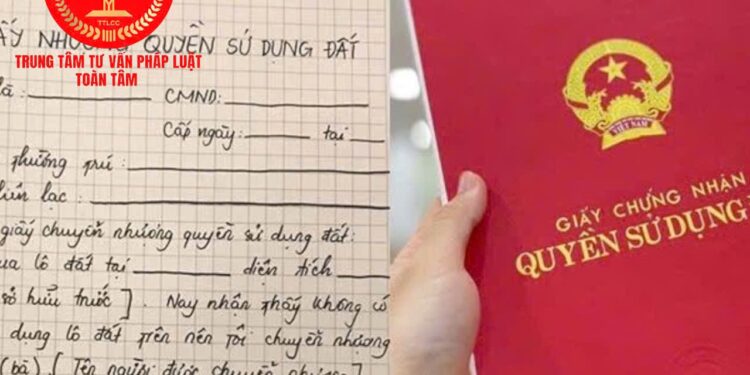 TTLCC
TRUNG TÂM TƯ VẤN PHÁP LUẬT
TOÀN TÂM
ẤY NHƯỢNG QUYỀN SỬ DỤNG ĐẤT
là : CMND:
Cấp ngày: tại
thường trú :
liên lạc :
giấy chuyển nhượng quyền sử dụng đất:
ua lô đất tại diện tích
sở hữu trước ] . Nay nhận thấy không có
dụng lô đất trên nên tôi chuyển nhượng
(bà) [ Tên người được chuyển nhượng ]
VIỆT NAM
GIẤY CHỨNG NHẬN
QUYỀN SỬ DỤNG